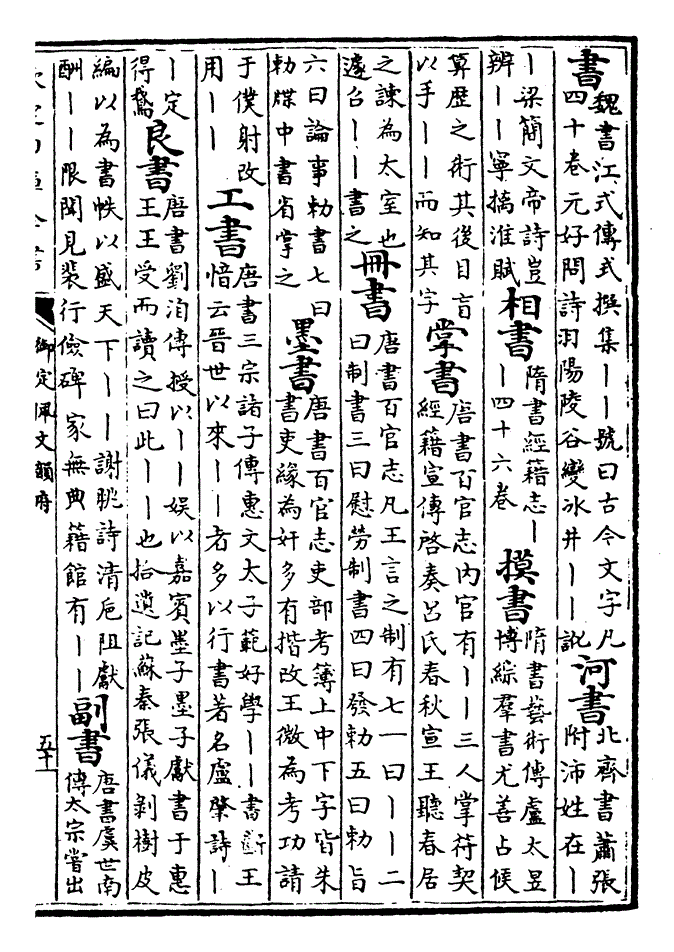 書
魏書江式傳式撰集丨丨號曰古今文字凡
四十卷元好問詩羽陽陵谷變冰井丨丨訛
河書
北齊書蕭張
附沛姓在丨
丨梁簡文帝詩豈
辨丨丨寧摛淮賦
相書
隋書經籍志丨
丨四十六卷
摸書
隋書藝術傳盧太昱
博綜羣書尤善占候
算歷之術其後目盲
以手丨丨而知其字
掌書
唐書百官志內官有丨丨三人掌符契
經籍宣傳啓奏吕氏春秋宣王聽春居
之諫為太室也
遽召丨丨書之
冊書
唐書百官志凡王言之制有七一曰丨丨二
曰制書三曰慰勞制書四曰發勅五曰勅旨
六曰論事勅書七曰
勅牒中書省掌之
墨書
唐書百官志吏部考簿上中下字皆朱
書吏緣為奸多有揩改王徽為考功請
于僕射改
用丨丨
工書
唐書三宗諸子傳惠文太子範好學丨丨書斷王
愔云晉世以來丨丨者多以行書著名盧肇詩丨
丨定
得鵞
良書
唐書劉洎傳授以丨丨娱以嘉賓墨子墨子獻書于惠
王王受而讀之曰此丨丨也拾遺記蘇秦張儀剝樹皮
編以為書帙以盛天下丨丨謝朓詩清卮阻獻
酬丨丨限聞見裴行儉碑家無典籍館有丨丨
副書
唐書虞世南
傳太宗嘗出
御定佩文韻府
五十